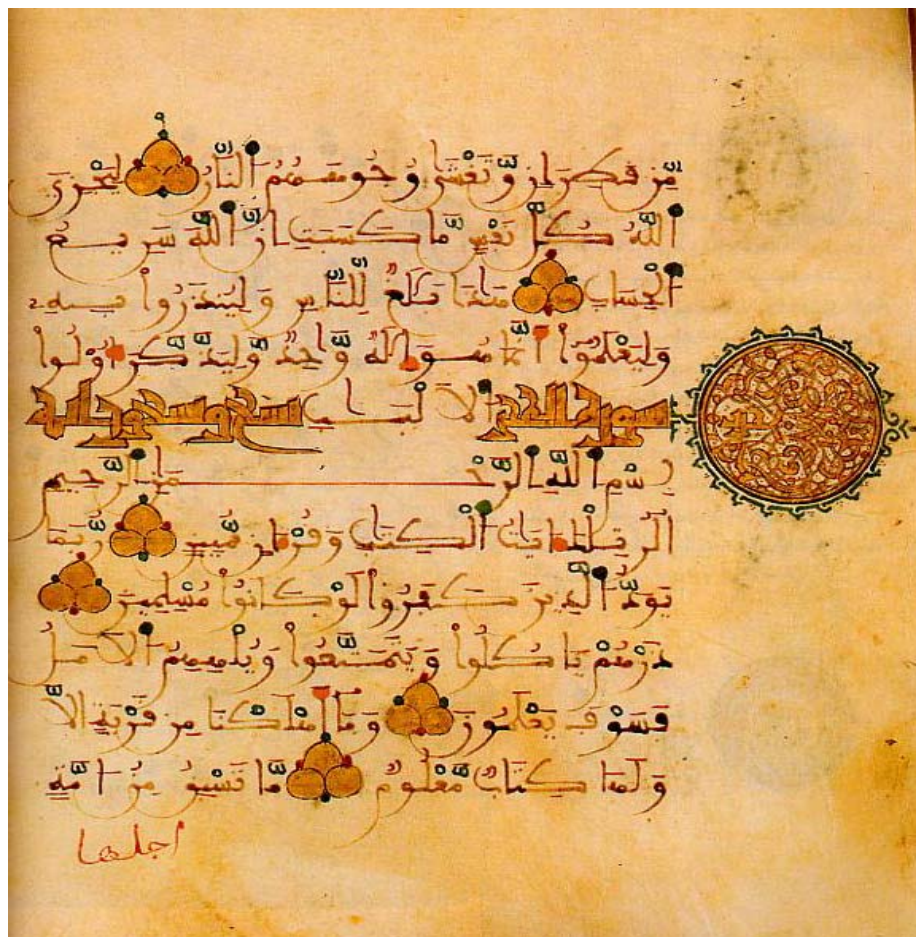 مِّن قَطِرَانٍ وَّتَغْشَىٰ وُجُوهَهُمُ النَّارُ لِيَجْزِيَ
اللَّهُ كُلَّ نَفْسٍ مَّا كَسَبَتِ اِنَّ اللَّهَ سَرِيعُ
الْحِسَابِ هَٰذَا بَلَٰغٌ لِّلنَّاسِ وَلِيُنذَرُواْ بِهِۦ
وَلِيَعْلَمُوٓاْ أَنَّمَا هُوَ إِلَٰهٌ وَّاحِدٌ وَّلِيَذَّكَّرَ أُوْلُواْ
سورة الحجر الَالْبَٰبِ تسع وتسعون اية
بِسْمِ اللَّهِ الرَّحْمَٰنِ الرَّحِيمِ
الٓر تِلْكَ ءَايَٰتُ الْكِتَٰبِ وَقُرْءَانٍ مُّبِينٍ رُّبَمَا
يَوَدُّ الَّذِينَ كَفَرُواْ لَوْ كَانُواْ مُسْلِمِينَ
ذَرْهُمْ يَاكُلُواْ وَيَتَمَتَّعُواْ وَيُلْهِهِمُ الَامَلُ
فَسَوْفَ يَعْلَمُونَ وَمَآ أَهْلَكْنَا مِن قَرْيَةٍ اِلَّا
وَلَهَا كِتَابٌ مَّعْلُومٌ مَّا تَسْبِقُ مِنُ امَّةٍ
اجلها